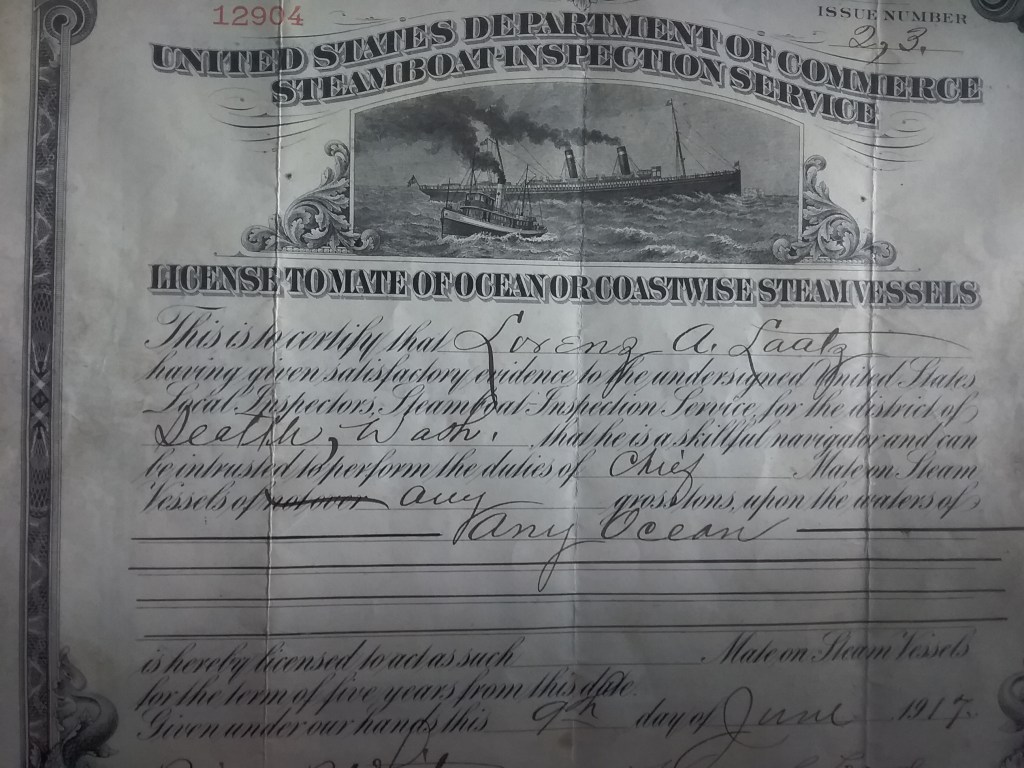 12904
ISSUE NUMBER
2, 3.
UNITED STATES DEPARTMENT OF COMMERCE
STEAMBOAT-INSPECTION SERVICE
LICENSE TO MATE OF OCEAN OR COASTWISE STEAM VESSELS
This is to certify that Lorenz A. Laatz
having given satisfactory evidence to the undersigned United States
Local Inspectors, Steamboat-Inspection Service, for the district of
Seattle, Wash. that he is a skillful navigator and can
be intrusted to perform the duties of Chief Mate on Steam
Vessels of not over any gross tons, upon the waters of
Any Ocean
is hereby licensed to act as such Mate on Steam Vessels
for the term of five years from this date.
Given under our hands this 9th day of June 1917.